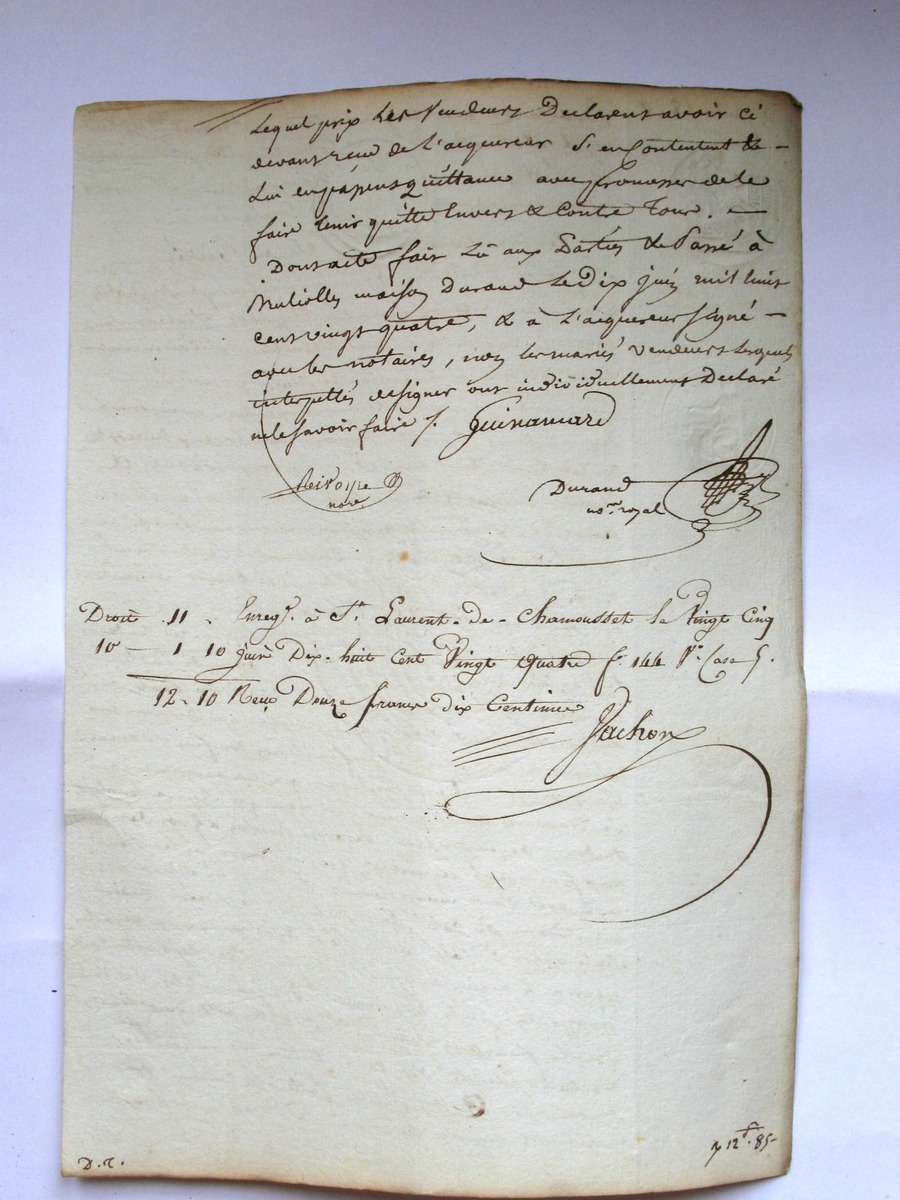 Lequel prix Les Vendeurs Declarent avoir ci
devant reçu de l'acquereur S'en Contentent &
Lui en passent quittance avec promesse de le
faire tenir quitte Envers & Contre Tous. —
Dont acte fait Lû aux Parties & Passé à
maison Durand Le Dix juin mil huit
cent vingt quatre, & à L'acquereur signé —
avec les notaires, non les mariés vendeurs lesquels
interpellés de signer ont individuellement Declaré
ne le savoir faire /.
Guinamard
nore.
Durand
no.re royal
Droit 11 . Enreg.é à St. Laurent-de-Chamousset le Vingt Cinq
10e — 1 10 juin Dix-huit Cent Vingt quatre fo. 144 Vo. Case 5.
12-10 Reçu Douze francs dix Centimes
Jachon
D.r.
12f.85